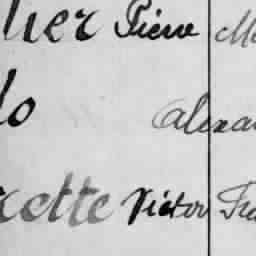 lier Pierre Ma
lo Alexan
xette Victor Fra